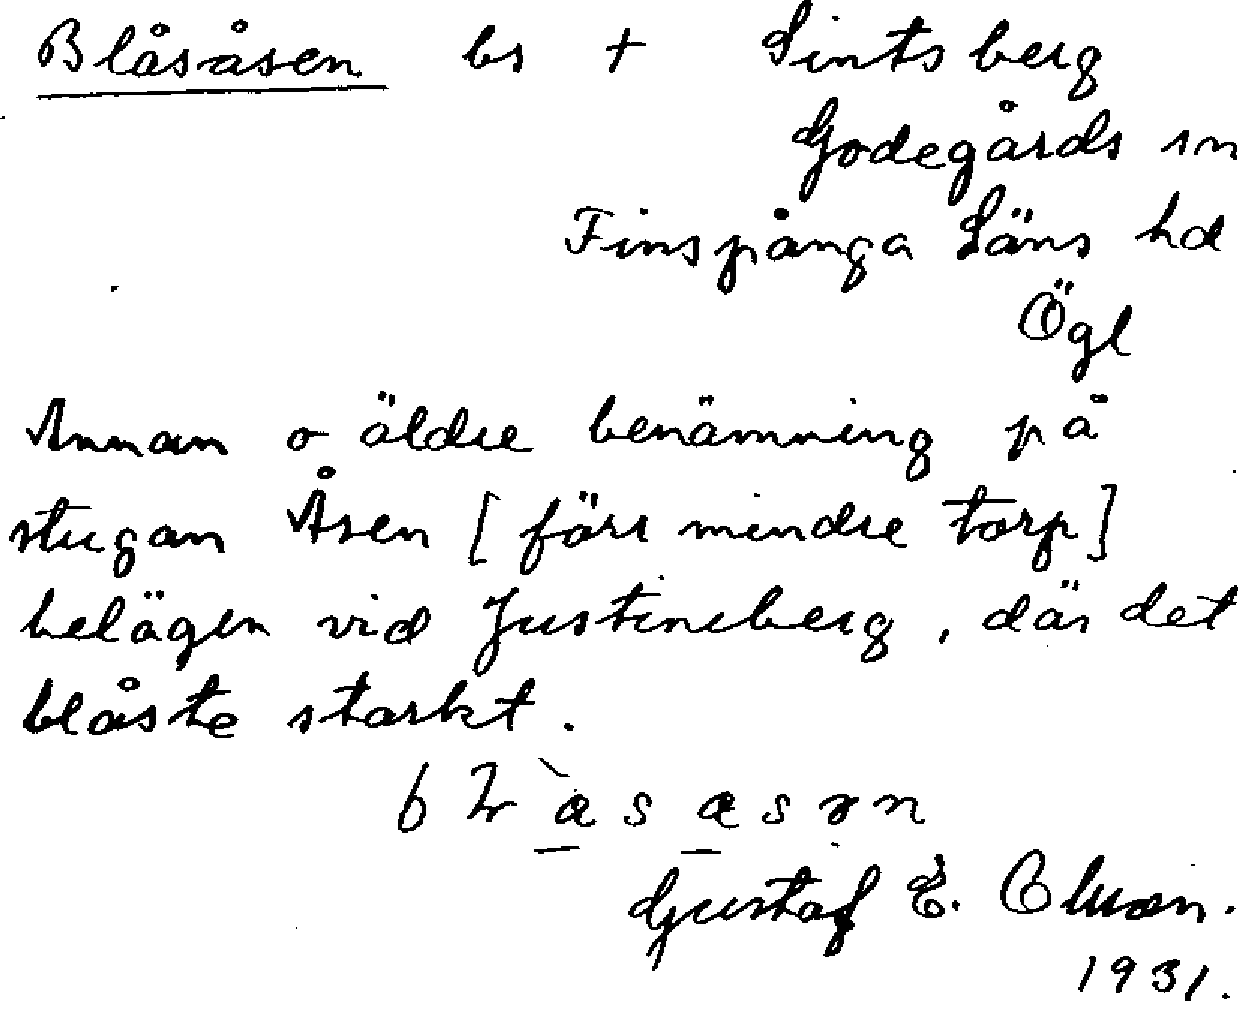 Blåsåsen bs + Sintsberg
Godegårds sn
Finspånga Läns hd
Ögl
Annan o äldre benämning på
stugan Åsen [förr mindre torp]
belägen vid Justineberg, där det
blåste starkt.
Gustaf E.
1931.